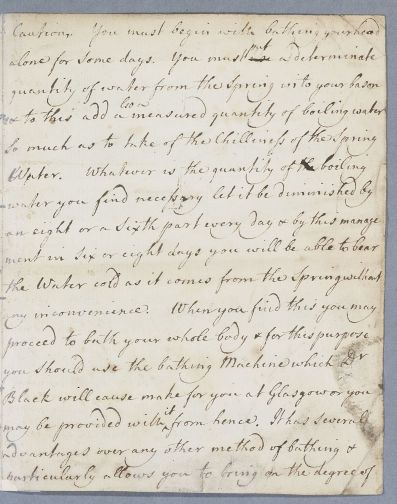 Caution. You must begin with bathing your head
alone for some days. You must put a Determinate
quantity of water from the Spring into your bason
& to this add (to a measured quantity of boiling water
So much as to take of the Chilliness of the Spring
Water. Whatever is the quantity of boiling
water you find necessary let it be diminished by
an eight or a Sixth part every day & by this manage
ment in Six or eight days you will be able to bear
the Water cold as it comes from the Spring without
any inconvenience. When you find this you may
proceed to bath your whole body & for this purpose
you should use the bathing Machine which Dr
Black will cause make for you at Glasgow or you
may be provided with it from hence. It has severall
advantages over any other method of bathing &
particularly allows you to bring on the degree of